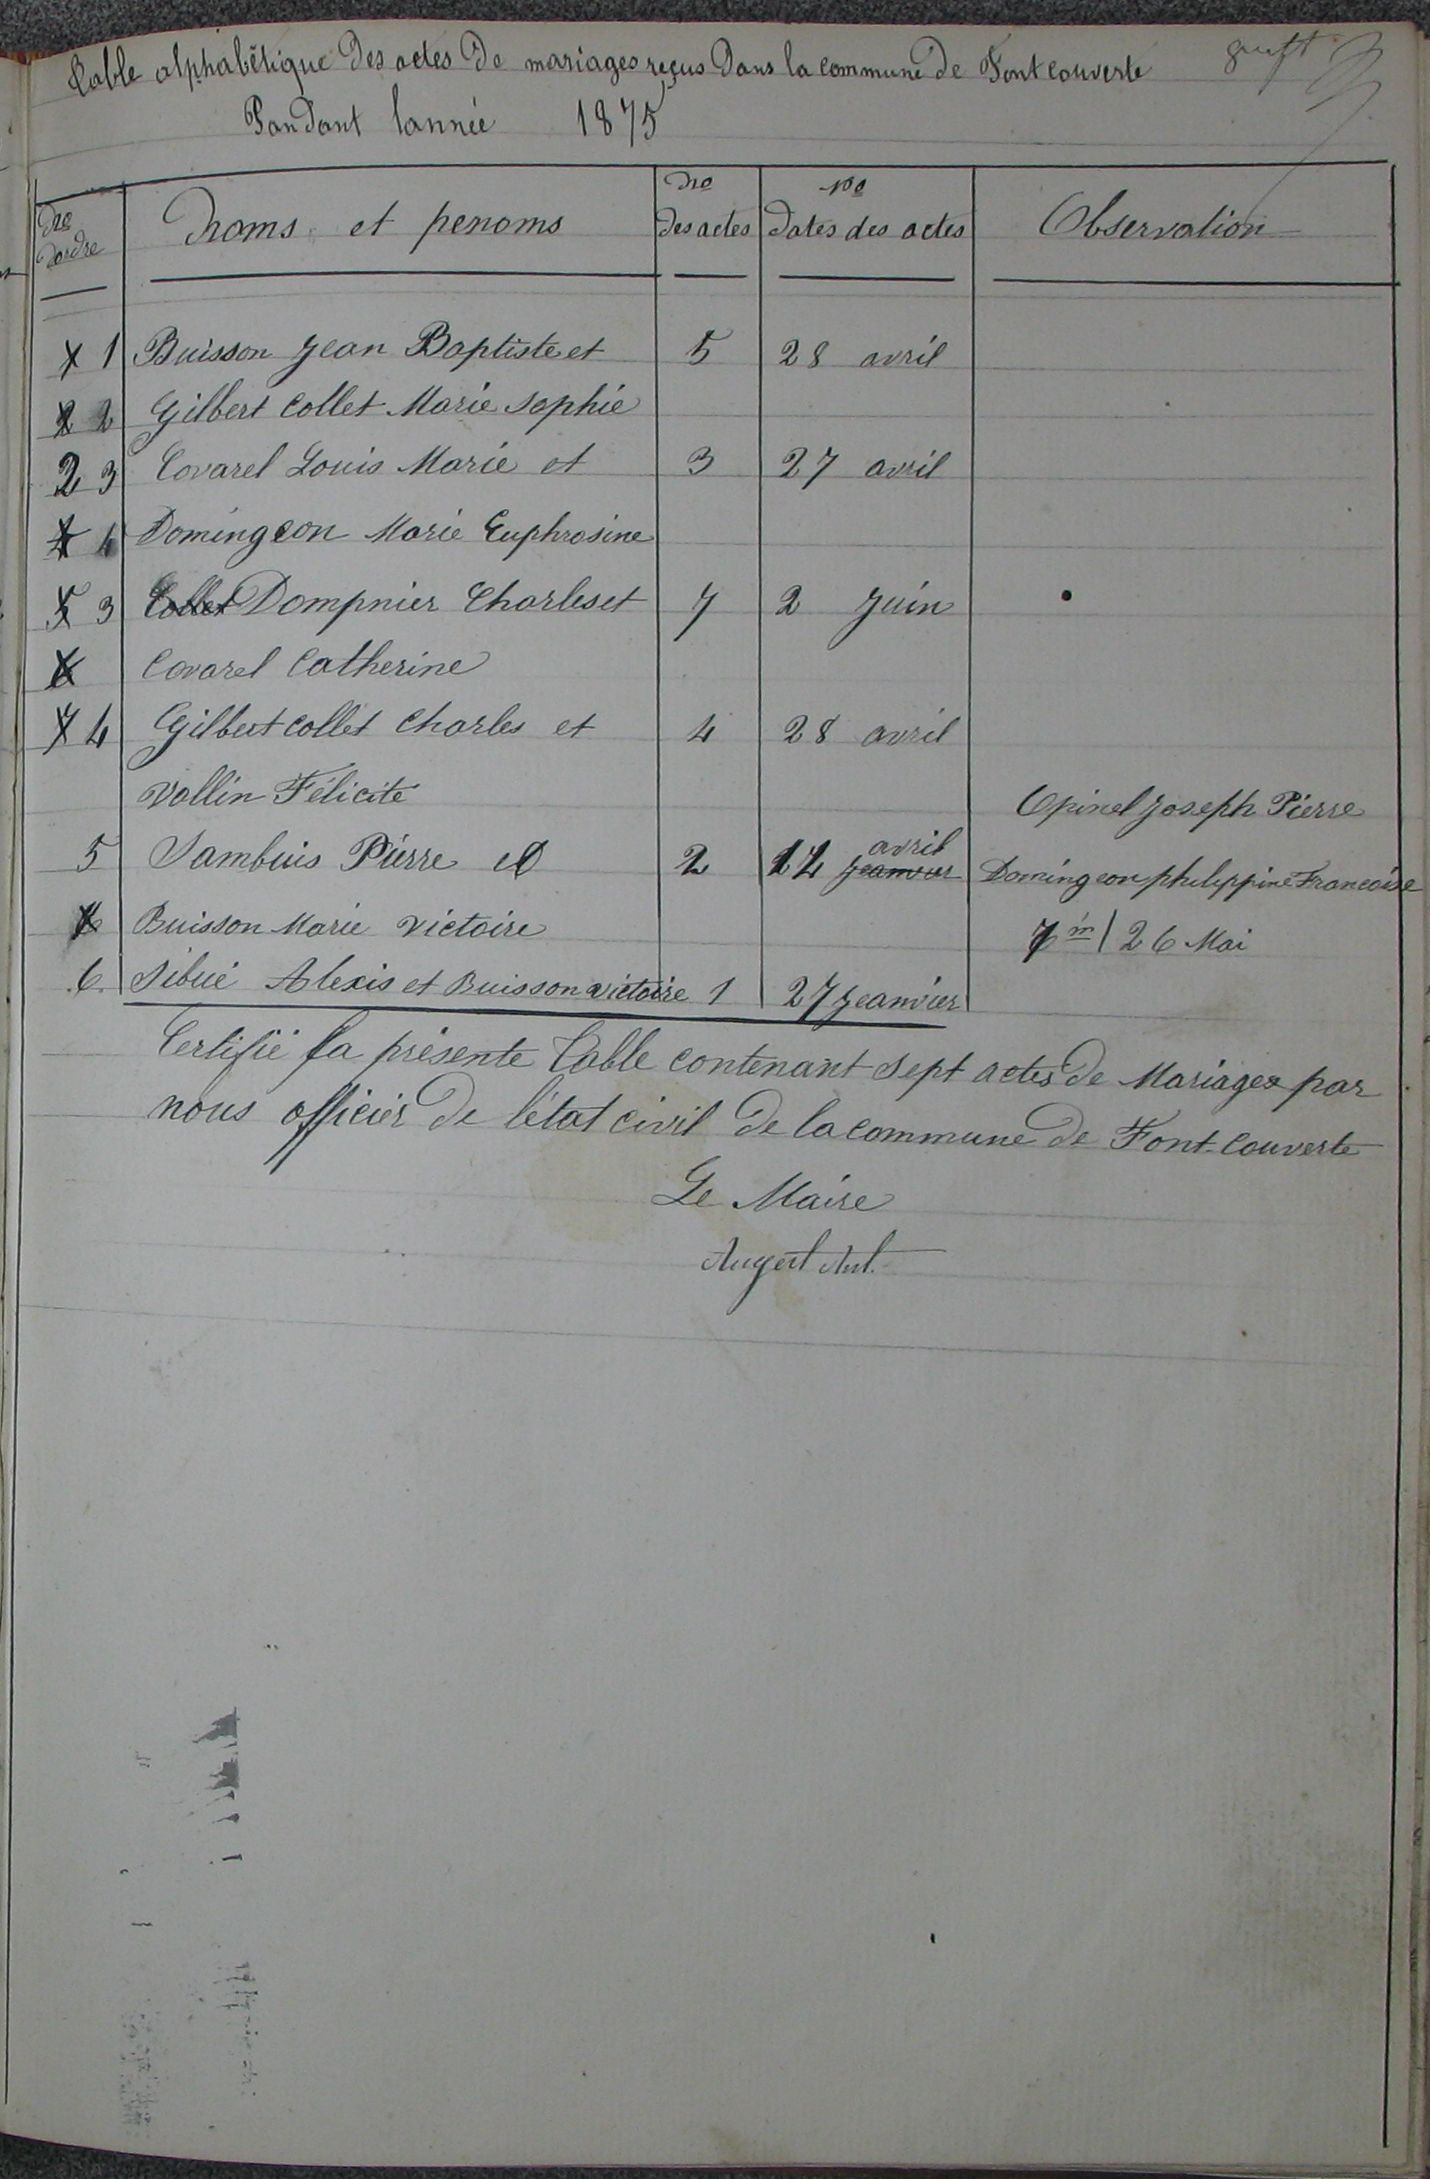 Table alphabétique des actes de mariages reçus dans la commune de Fontcouverte
Pandant lannée 1875
Nro dordre Noms et penoms Nro des actes Nro dates des actes Observation
1 Buisson Jean Baptiste et 5 28 avril
2 2 Gilbert Collet Marie Sophie
2 3 Covarel Louis Marie et 3 27 avril
4 4 Domingeon Marie Euphrosine
5 3 Collet Dompnier Charles et 7 2 Juin
6 Covarel Catherine
7 4 Gilbert Collet Charles et 4 28 avril
Vallin Félicité Opinel Joseph Pierre
5 Sambuis Pierre et 2 14 jeanvier avril Domingeon philippine Francoise
6 Buisson Marie Victoire 7 m / 26 Mai
6 Sibué Alexis et Buisson victoire 1 27 jeanvier
Certifié la présente Table contenant sept actes de Mariages par
nous officier de l'état civil de la commune de Font-Couverte
Le Maire
Augert Ant.